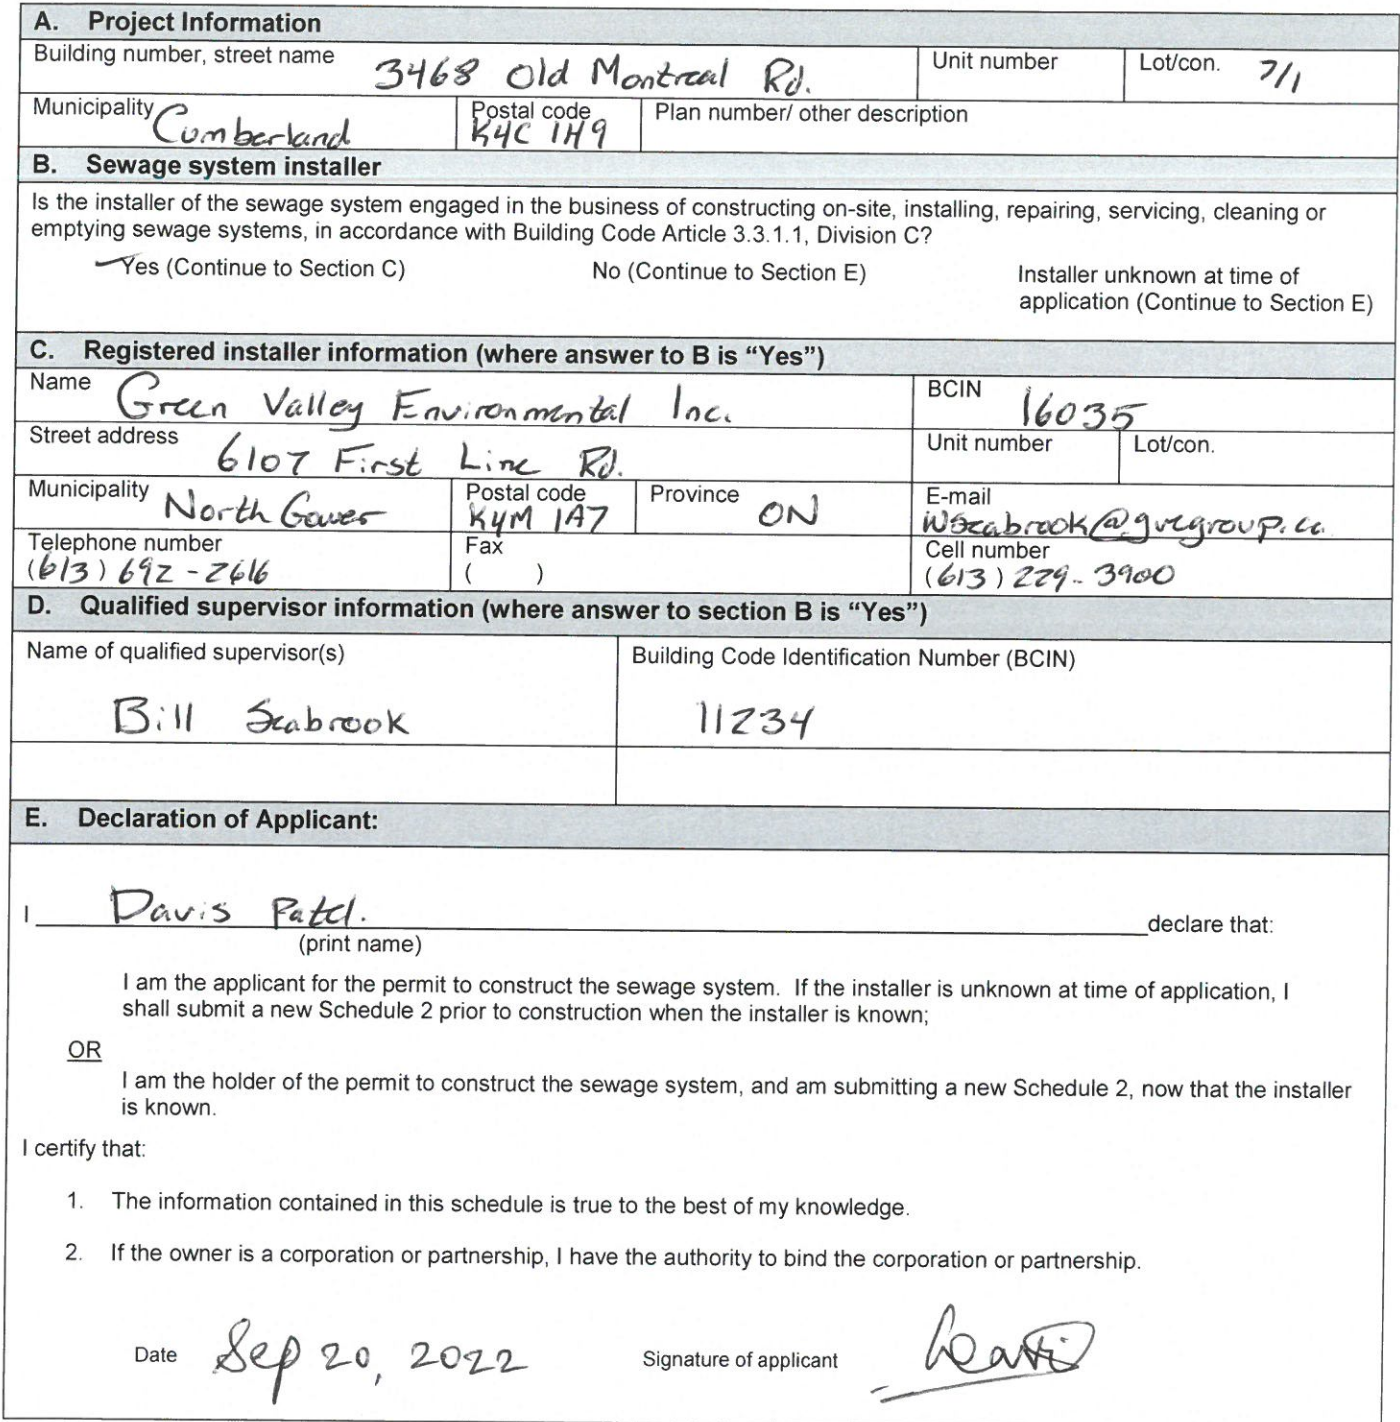 A. Project Information
Building number, street name 3468 Old Montreal Rd. Unit number Lot/con. 7/1
Municipality Cumberland Postal code K4C 1H9 Plan number/ other description
B. Sewage system installer
Is the installer of the sewage system engaged in the business of constructing on-site, installing, repairing, servicing, cleaning or
emptying sewage systems, in accordance with Building Code Article 3.3.1.1, Division C?
Yes (Continue to Section C) No (Continue to Section E) Installer unknown at time of
application (Continue to Section E)
C. Registered installer information (where answer to B is “Yes”)
Name Green Valley Environmental Inc. BCIN 16035
Street address 6107 First Line Rd. Unit number Lot/con.
Municipality North Gower Postal code K4M 1A7 Province ON E-mail wseabrook@gvegroup.ca
Telephone number (613) 692-2616 Fax ( ) Cell number (613) 229-3900
D. Qualified supervisor information (where answer to section B is “Yes”)
Name of qualified supervisor(s) Building Code Identification Number (BCIN)
Bill Seabrook 11234
E. Declaration of Applicant:
I Davis Patel. declare that:
(print name)
I am the applicant for the permit to construct the sewage system. If the installer is unknown at time of application, I
shall submit a new Schedule 2 prior to construction when the installer is known;
OR
I am the holder of the permit to construct the sewage system, and am submitting a new Schedule 2, now that the installer
is known.
I certify that:
1. The information contained in this schedule is true to the best of my knowledge.
2. If the owner is a corporation or partnership, I have the authority to bind the corporation or partnership.
Date Sep 20, 2022 Signature of applicant